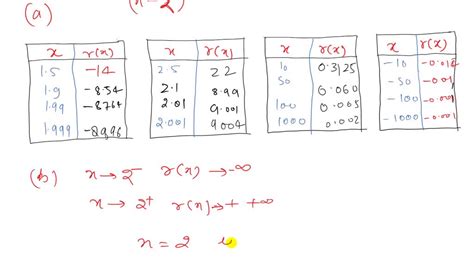 (a) (x-2)
x r(x)
1.5 -14
1.9 -8.54
1.99 -8764
1.999 -8996
x r(x)
2.5 22
2.1 8.99
2.01 9.001
2.001 9004
x r(x)
10 0.3125
50 0.060
100 0.005
1000 0.002
x r(x)
-10 -0.014
-50 -0.001
-100 -0.001
-1000 -0.001
(b) x→2⁻ r(x)→-∞
x→2⁺ r(x)→+ +∞
x=2